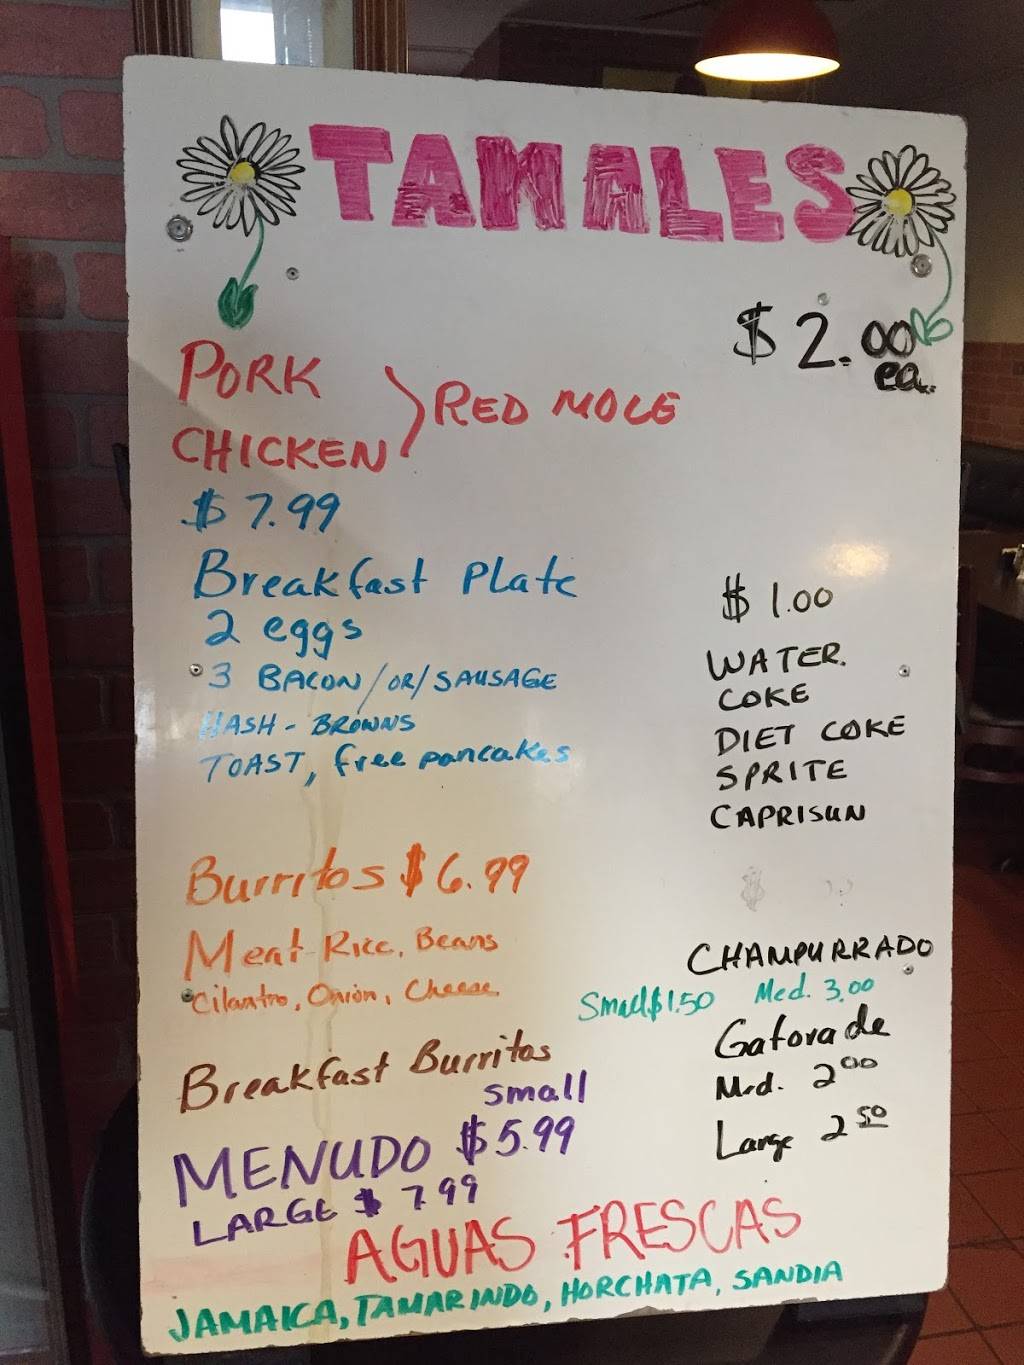 TAMALES
$2.00 ea.
PORK
CHICKEN
RED MOLE
$7.99
Breakfast Plate
2 eggs
3 BACON/OR/SAUSAGE
HASH-BROWNS
TOAST, free pancakes
$1.00
WATER.
COKE
DIET COKE
SPRITE
CAPRISUN
Burritos $6.99
Meat Rice, Beans
Cilantro, Onion, Cheese
CHAMPURRADO
Small $1.50 Med. 3.00
Gatorade
Med. 2.00
Large 2.50
Breakfast Burritos
small
MENUDO $5.99
LARGE $7.99
AGUAS FRESCAS
JAMAICA, TAMARINDO, HORCHATA, SANDIA